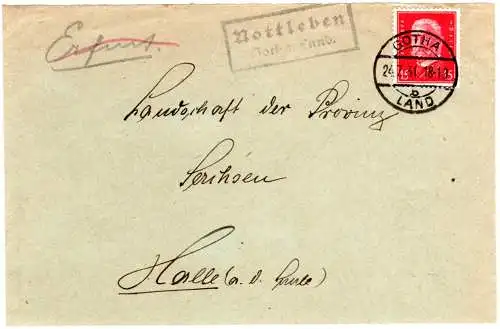 Erfurt.
Nottleben
Gotha Land.
GOTHA
24.7.31. 18-19
b
LAND
15 15
Landschaft der Provinz
Sachsen
Halle (a. d. Saale)